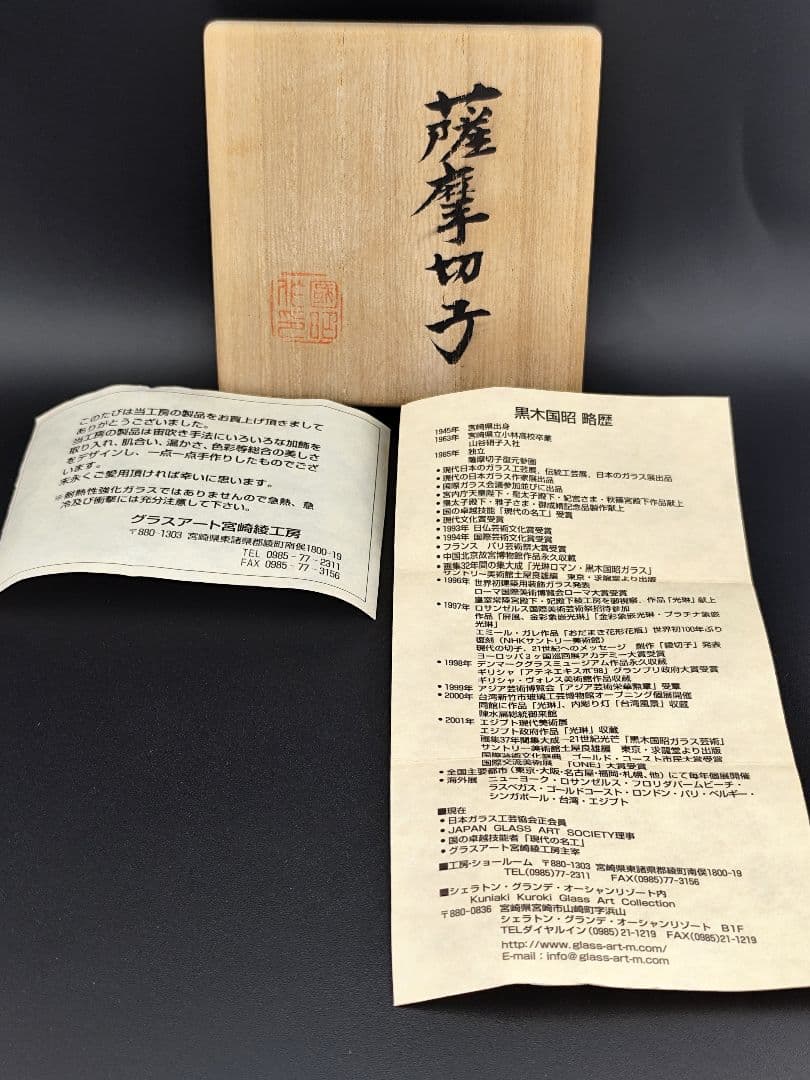 薩摩切子
國昭
このたびは当工房の製品をお買上げ頂きまして
ありがとうございました。
当工房の製品は宙吹き手法にいろいろな加飾を
取り入れ、肌合い、温かさ、色彩等総合の美しさ
をデザインし、一点一点手作りしたものでござ
います。
末永くご愛用頂ければ幸いに思います。
※耐熱性強化ガラスではありませんので急熱、急
冷及び衝撃には充分注意して下さい。
グラスアート宮崎綾工房
〒880-1303 宮崎県東諸県郡綾町南俣1800-19
TEL 0985-77-2311
FAX 0985-77-3156
黒木国昭 略歴
1945年 宮崎県出身
1963年 宮崎県立小林高校卒業
山谷硝子入社
1985年 独立
薩摩切子復元参画
●現代日本のガラス工芸展、伝統工芸展、日本のガラス展出品
●現代のガラス作家展出品
●国際ガラス会議参加並びに出品
●宮内庁天皇陛下・皇太子殿下・妃宮さま・秋篠宮殿下作品献上
●皇太子殿下・雅子さま・御成婚記念品製作献上
●国の卓越技能「現代の名工」受賞
●現代文化賞受賞
●1993年 日仏芸術文化賞受賞
●1994年 国際芸術文化賞受賞
●フランス パリ芸術祭大賞受賞
●中国北京故宮博物館作品永久収蔵
●画集32年間の集大成「光琳ロマン・黒木国昭ガラス」
サントリー美術館土屋良雄編 東京・求龍堂より出版
●1996年 世界初建築用装飾ガラス発表
ローマ国際美術博覧会ローマ大賞受賞
皇室常陸宮殿下・妃殿下綾工房を御視察、作品「光琳」献上
●1997年 ロサンゼルス国際美術芸術祭招待参加
作品「屏風、金彩象嵌光琳」「金彩象嵌光琳・プラチナ象嵌
光琳」
エミール・ガレ作品「おだまき花形花瓶」世界初100年ぶり
復刻(NHKサントリー美術館)
現代の切子、21世紀へのメッセージ 創作「綾切子」発表
ヨーロッパ3ヶ国巡回展アカデミー大賞受賞
●1998年 デンマークグラスミュージアム作品永久収蔵
ギリシャ「アテネエキスポ'98」グランプリ政府大賞受賞
ギリシャ・ヴォレス美術館作品収蔵
●1999年 アジア芸術博覧会「アジア芸術栄華勲章」受章
●2000年 台湾新竹市玻璃工芸博物館オープニング個展開催
同館に作品「光琳」、内彫り灯「台湾風景」収蔵
陳水扁総統御来館
●2001年 エジプト現代美術展
エジプト政府作品「光琳」収蔵
画集37年間集大成―21世紀光芒「黒木国昭ガラス芸術」
サントリー美術館土屋良雄編 東京・求龍堂より出版
国際芸術文化祭典 ゴールド・コースト市民大賞受賞
国際交流美術展 「ONE」大賞受賞
●全国主要都市(東京・大阪・名古屋・福岡・札幌、他)にて毎年個展開催
●海外展 ニューヨーク・ロサンゼルス・フロリダパームビーチ・
ラスベガス・ゴールドコースト・ロンドン・パリ・ベルギー・
シンガポール・台湾・エジプト
■現在
●日本ガラス工芸協会正会員
●JAPAN GLASS ART SOCIETY理事
●国の卓越技能者「現代の名工」
●グラスアート宮崎綾工房主宰
■工房・ショールーム 〒880-1303 宮崎県東諸県郡綾町南俣1800-19
TEL(0985)77-2311 FAX(0985)77-3156
■シェラトン・グランデ・オーシャンリゾート内
Kuniaki Kuroki Glass Art Collection
〒880-0836 宮崎県宮崎市山崎町字浜山
シェラトン・グランデ・オーシャンリゾート B1F
TELダイヤルイン(0985)21-1219 FAX(0985)21-1219
http://www.glass-art-m.com/
E-mail:info@glass-art-m.com